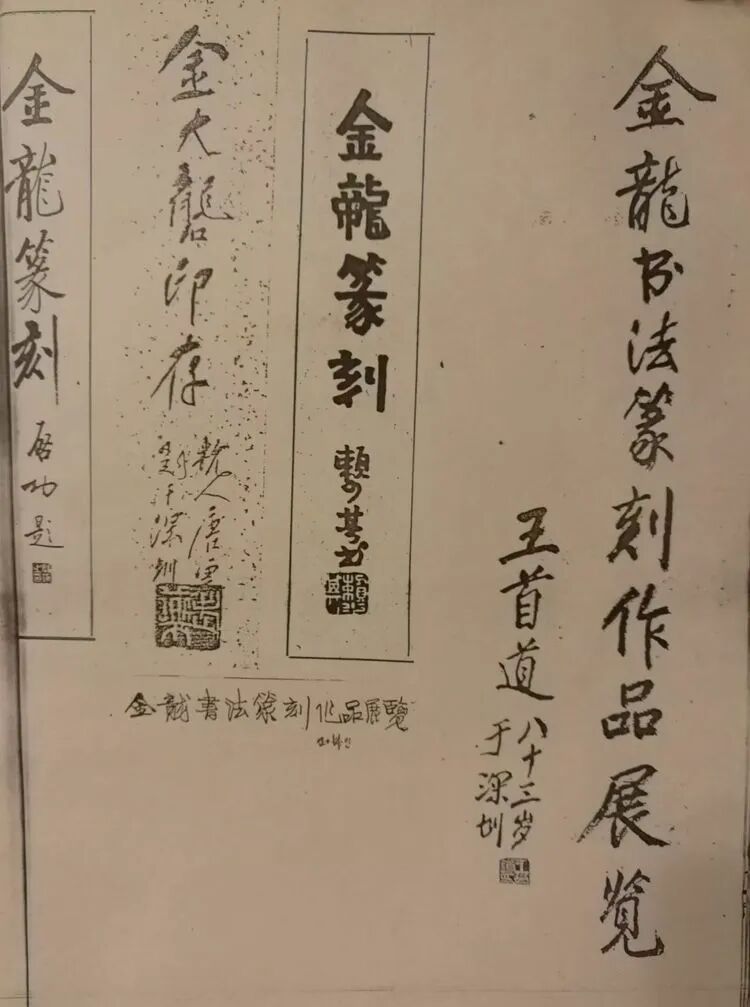 金龍书法篆刻作品展览
王首道
八十三岁
于深圳
金龍篆刻
賴少其书
金大龍印存
唐雲
深圳
金龍篆刻
启功题
金龍書法篆刻作品展覽